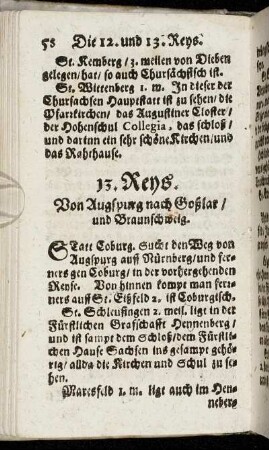 58 Die 12. und 13. Reys.
St. Kemberg / 3. meilen von Dieben
gelegen / hat / so auch Chursächsisch ist.
St. Wittenberg 1. m. In dieser der
Chursachsen Hauptstatt ist zu sehen / die
Pfarrkirchen / das Augustiner Closter /
der Hohenschul Collegia, das schloß /
und darinn ein sehr schöne Kirchen / und
das Rahthause.
13. Reys.
Von Augspurg nach Goßlar /
und Braunschweig.
Statt Coburg. Sucht den Weg von
Augspurg auff Nürnberg / und fer-
ners gen Coburg / in der vorhergehenden
Reyse. Von hinnen kompt man fer-
ners auff St. Eißfeld 2. ist Coburgisch.
St. Schleusingen 2. meil. ligt in der
Fürstlichen Grafschafft Heynenberg /
und ist sampt dem Schloß / dem Fürstli-
chen Hause Sachsen ins gesampt gehö-
rig / allda die Kirchen und Schul zu se-
hen.
Maresfeld 1. m. ligt auch im Hen-
neberg